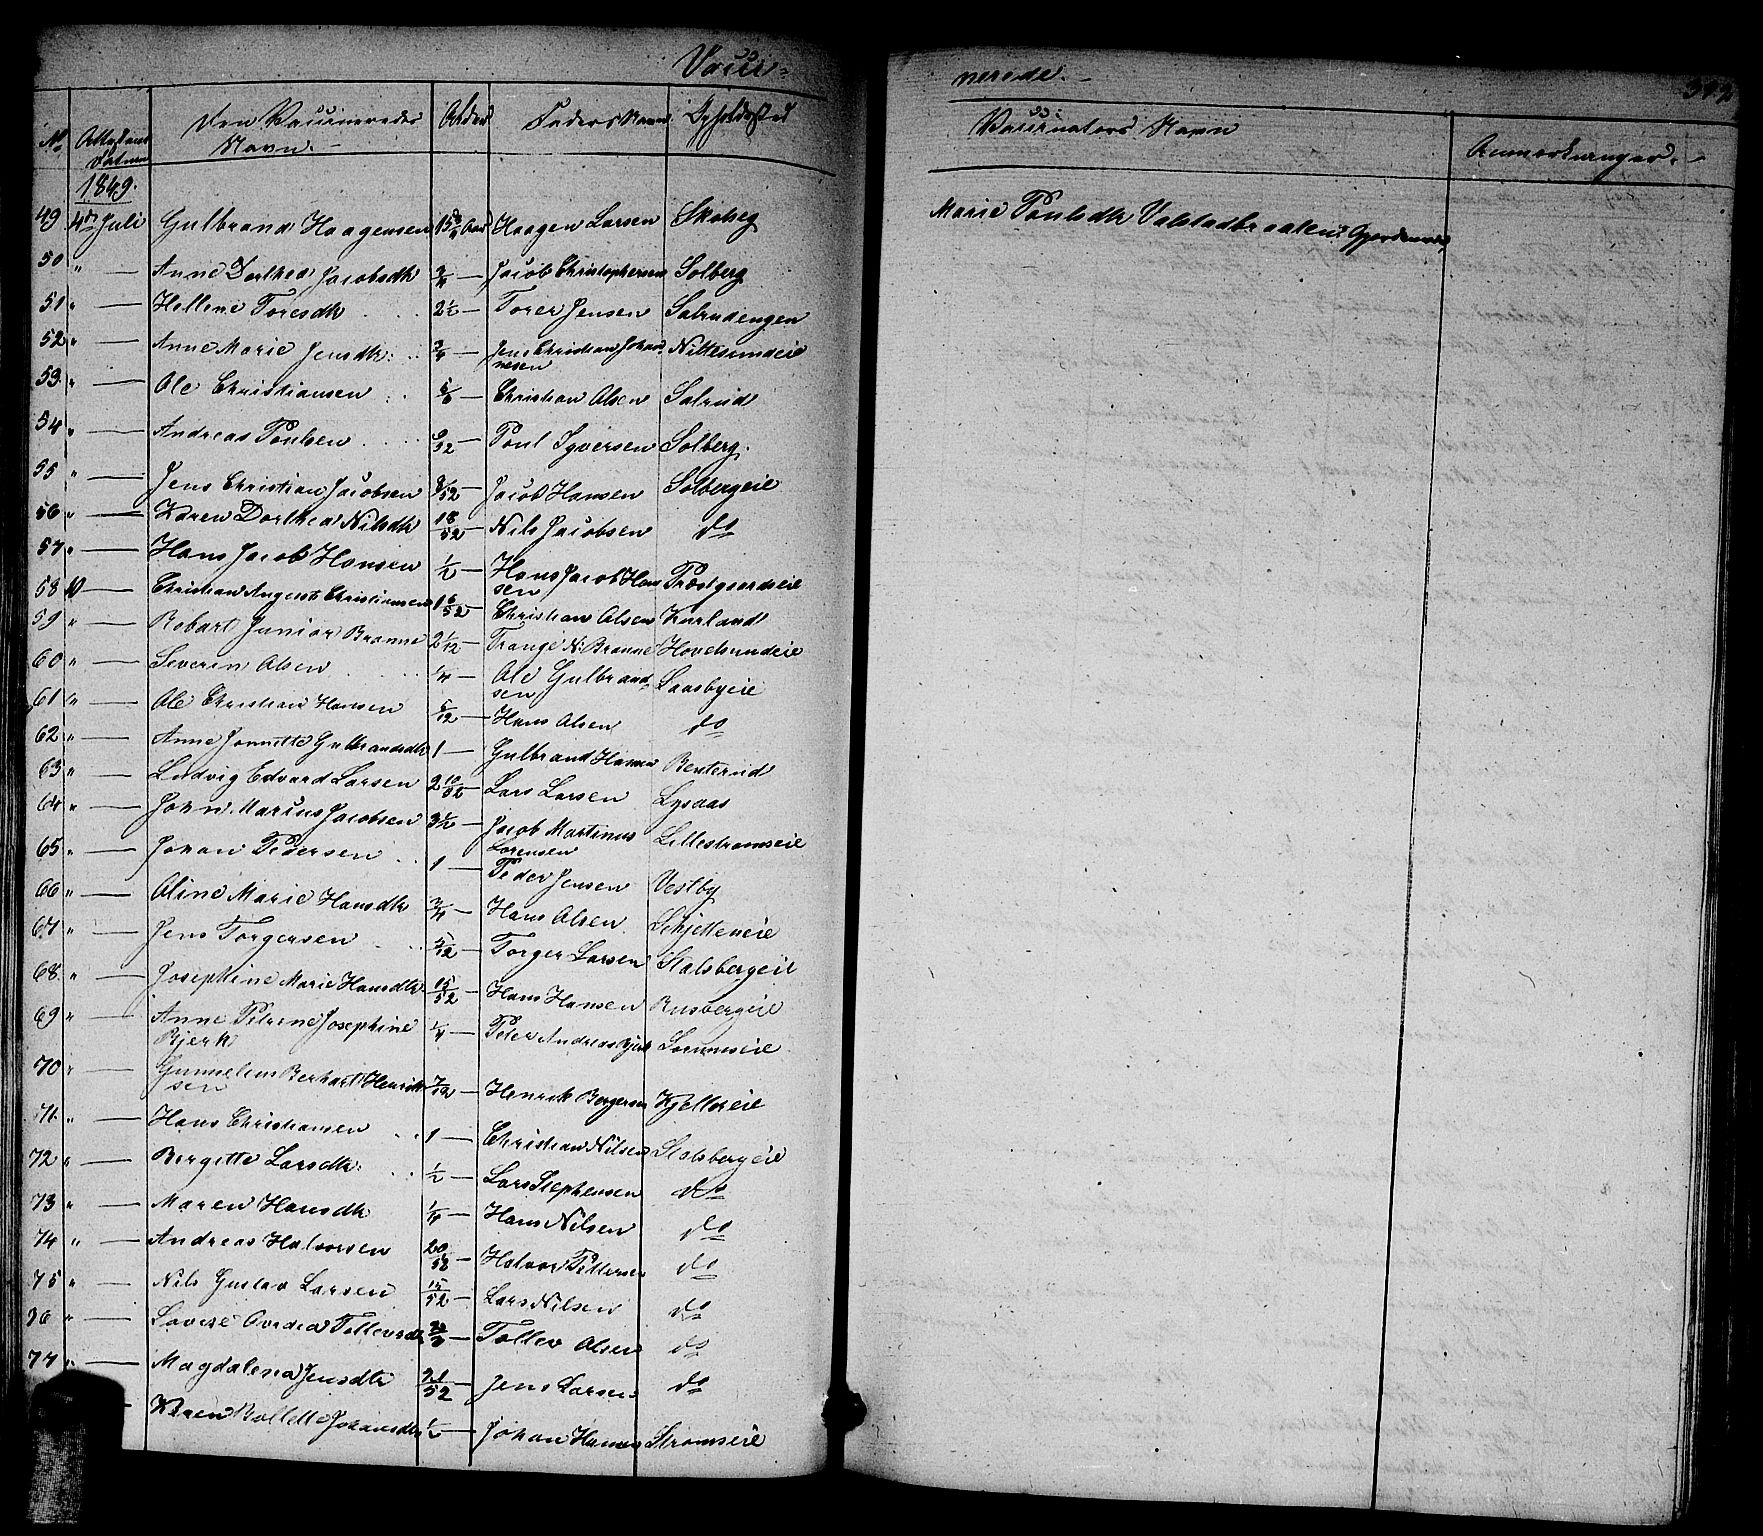 Vacci-
nerede.
No Attestens Datum Den Vaccineredes Navn. Alder Faders Navn Opholdssted
Vaccinateurs Navn Anmærkninger.
1849.
49 4de Juli Gulbrand Haagensen Aar Haagen Larsen Skoheg
Marie Poulsdtr
50 " — Anne Dorthea Jacobsdtr 3/4 — Jacob Christophersen Solberg
51 " — Hellene Toresdtr 2 1/2 — Torer Jensen Salrudengen
52 " — Anne Marie Jensdtr: 3/4 — Jens Christian Johannesen Nittesundeie
53 " — Ole Christiansen — Christian Olsen Salrud
54 " — Andreas Poulsen — Poul Syversen Solberg.
55 " — Jens Christian Jacobsen 8/52 — Jacob Hansen Solbergeie
56 " — Karen Dorthea Nilsdtr 18/52 — Nils Jacobsen do
57 " — Hans Jacob Hansen 1/2 — Hans Jacob Hansen Præstgaardseie
58 10 — Christian August Christiansen — Christian Olsen Kurland
59 " — Robart Junior Brønne 2 1/12 — N: Brønne Hovelsrudeie
60 " — Severin Olsen 1/4 — Ole Gulbrandsen Laasbyeie
61 " — Ole Christian Hansen 5/12 — Hans Olsen do
62 " — Anne Jonnette Gulbrandsdtr 1 — Gulbrand Hansen Renterud
63 " — Ludvig Edvard Larsen 2 10/52 — Lars Larsen Lysaas
64 " — Johan Marius Jacobsen 3 1/2 — Jacob Martinus Lorensen Lillestrømseie
65 " — Johan Pedersen 1 — Peder Jensen Vestby
66 " — Oline Marie Hansdtr 3/4 — Hans Olsen Schjetteneie
67 " — Jens Torgersen 5/12 — Torger Larsen Stalsbergeie
68. " — Josephine Marie Hansdtr 15/52 — Hans Hansen Rusbergeie
69 " — Anne Petrine Josephine Bjerk 1/4 — Peter Andreas Bjerk Sørumseie
70 " — Berhart Henriksen 7/12 — Henrik Børgersen Kjelleseie
71. " — Hans Christiansen 1 — Christian Nilsen Stalsbergeie
72 " — Bergitte Larsdtr: 1/2 — Lars Stephensen do
73 " — Maren Hansdtr 1/4 — Hans Nilsen do
74 " — Andreas Halvorsen — Halvor Pettersen do
75 " — Nils Gustav Larsen 15/52 — Lars Nilsen do
76 " — Lovise Ovedia Tollevsdtr — Tollev Olsen do
77 " — Magdalena Jensdtr 21/52 — Jens Larsen do
— Karen Bollette Johansdtr 1/2 — Johan Hansen Strømseie